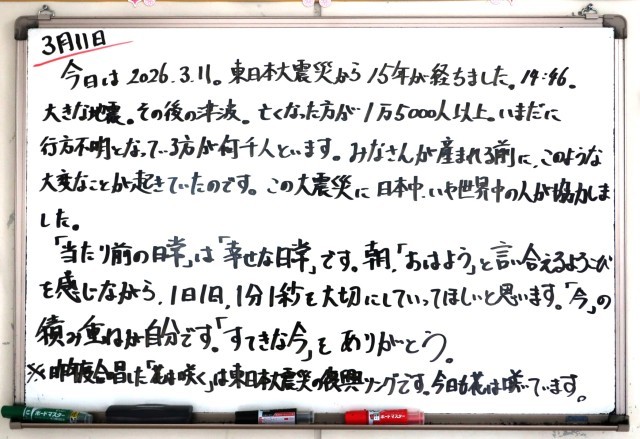 3月11日
今日は2026.3.11。東日本大震災から15年が経ちました。14:46。
大きな地震。その後の津波。亡くなった方が1万5000人以上。いまだに
行方不明となっている方が何千人といます。みなさんが産まれる前に、このような
大変なことが起きていたのです。この大震災に日本中、いや世界中の人が協力しま
した。
「当たり前の日常」は「幸せな日常」です。朝、「おはよう」と言い合えるよろこび
を感じながら、1日1日、1分1秒を大切にしていってほしいと思います。「今」の
積み重ねが自分です。「すてきな今」を ありがとう。
※昨年度合唱した「花は咲く」は東日本大震災の復興ソングです。今日も花は咲いています。
ボードマスター
ボードマスター